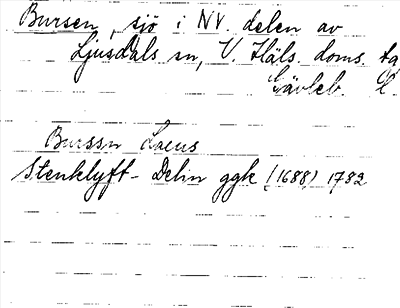 Bursen, sjö i NV. delen av
Ljusdals sn, V. Häls. doms. ta
Gävleb. L.
Burssn Lacus
Stenklyft - Delin ggk (1688) 1782